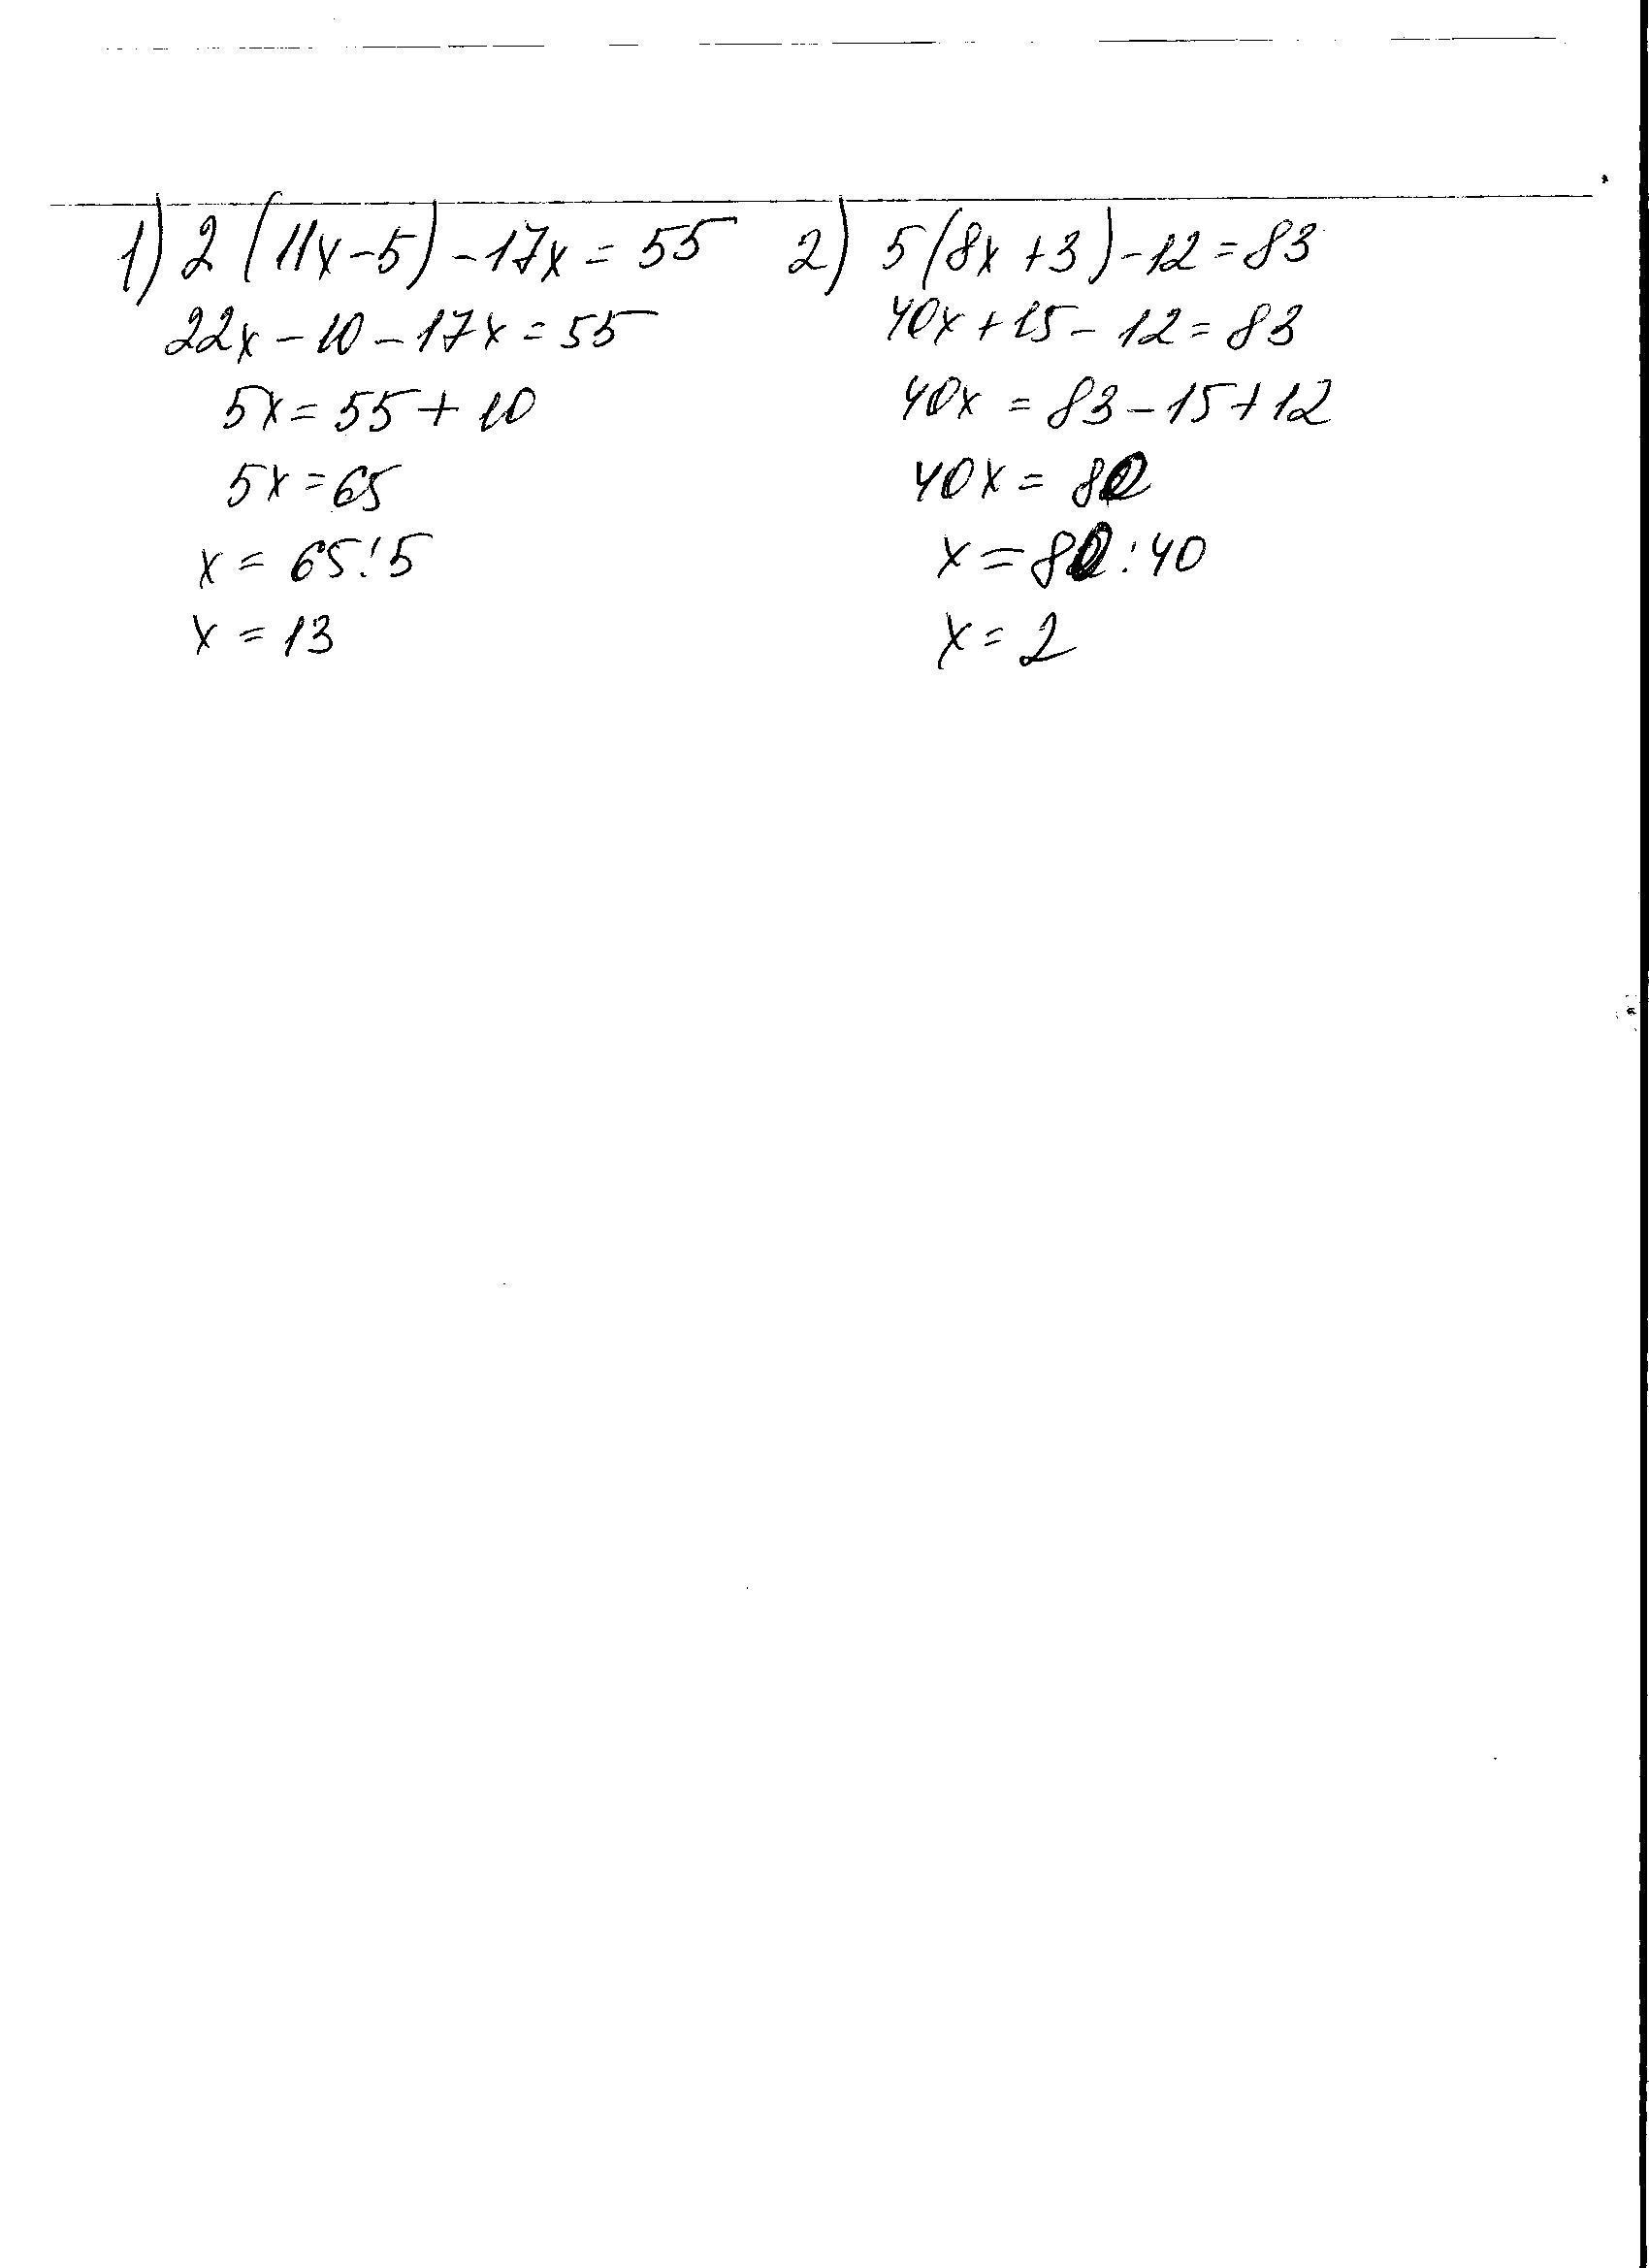 1) 2 (11x - 5) - 17x = 55
22x - 10 - 17x = 55
5x = 55 + 10
5x = 65
x = 65 : 5
x = 13
2) 5 (8x + 3) - 12 = 83
40x + 15 - 12 = 83
40x = 83 - 15 + 12
40x = 80
x = 80 : 40
x = 2